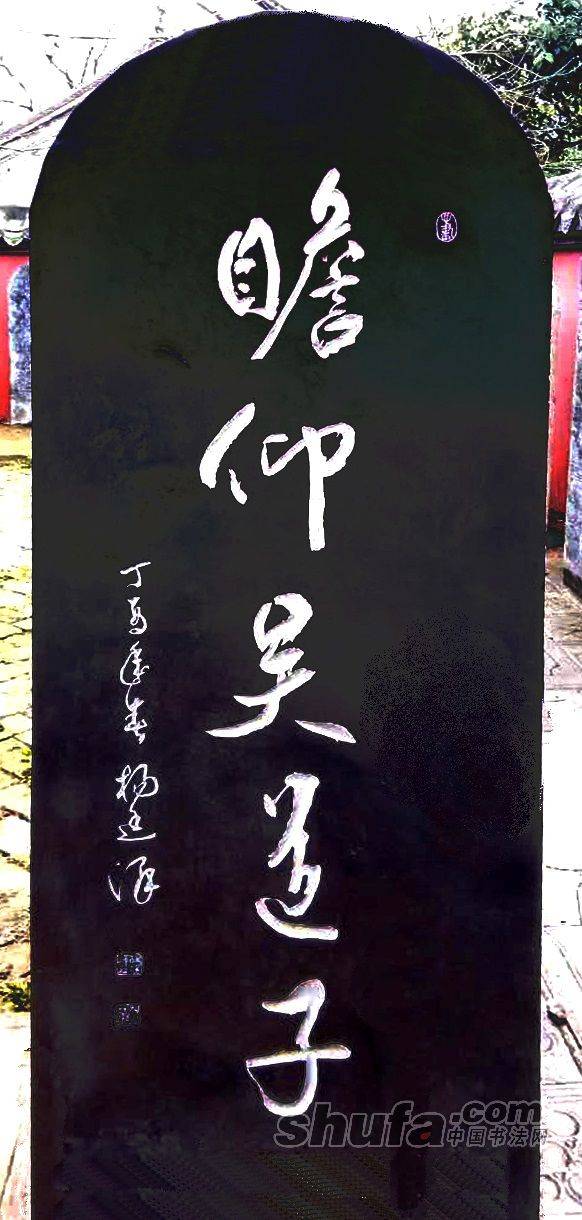 瞻仰吴道子
丁酉年春 杨廷
shufa.com
中国书法网